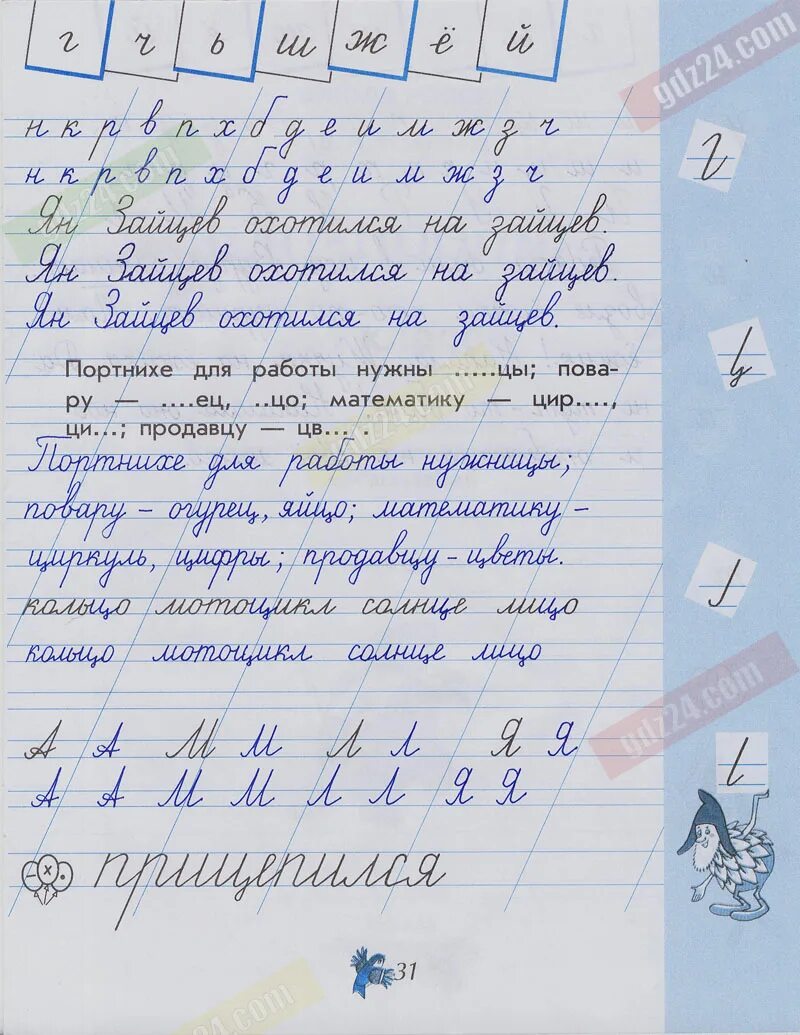 г ч ь ш ж ё й
gdz24.com
н к р в п х б д е и м ж з ч
н к р в п х б д е и м ж з ч
gdz24.com
Ян Зайцев охотился на зайцев.
Ян Зайцев охотился на зайцев.
Ян Зайцев охотился на зайцев.
Портнихе для работы нужны .....цы; пова-
ру — ....ец, ..цо; математику — цир....,
ци...; продавцу — цв... .
gdz24.com
Портнихе для работы нужницы;
повару – огурец, яйцо; математику –
циркуль, цифры; продавцу – цветы.
кольцо мотоцикл солнце лицо
кольцо мотоцикл солнце лицо
gdz24.com
А А М М Л Л Я Я
А А М М Л Л Я Я
прицепился
31
gdz24.com